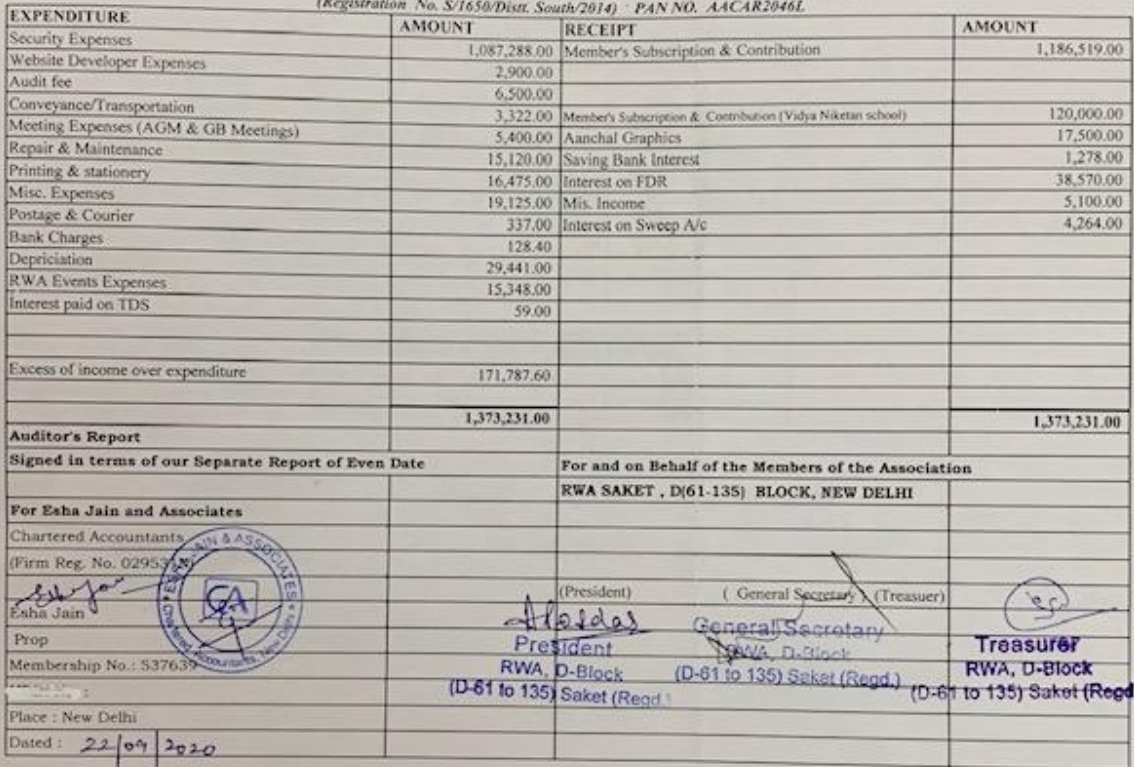 (Registration No. S/1650/Distt. South/2014) PAN NO. AACAR2046L
EXPENDITURE AMOUNT RECEIPT AMOUNT
Security Expenses 1,087,288.00 Member's Subscription & Contribution 1,186,519.00
Website Developer Expenses 2,900.00
Audit fee 6,500.00
Conveyance/Transportation 3,322.00 Member's Subscription & Contribution (Vidya Niketan school) 120,000.00
Meeting Expenses (AGM & GB Meetings) 5,400.00 Aanchal Graphics 17,500.00
Repair & Maintenance 15,120.00 Saving Bank Interest 1,278.00
Printing & stationery 16,475.00 Interest on FDR 38,570.00
Misc. Expenses 19,125.00 Mis. Income 5,100.00
Postage & Courier 337.00 Interest on Sweep A/c 4,264.00
Bank Charges 128.40
Depriciation 29,441.00
RWA Events Expenses 15,348.00
Interest paid on TDS 59.00
Excess of income over expenditure 171,787.60
1,373,231.00 1,373,231.00
Auditor's Report
Signed in terms of our Separate Report of Even Date For and on Behalf of the Members of the Association
RWA SAKET , D(61-135) BLOCK, NEW DELHI
For Esha Jain and Associates
Chartered Accountants
(Firm Reg. No. 02953
ESHA JAIN & ASSOCIATES
CA
Chartered Accountants, New Delhi
(President) ( General Secretary ) (Treasurer)
Esha Jain
Prop
Membership No.: 537639
President
RWA, D-Block
(D-61 to 135) Saket (Regd.
General Secretary
RWA, D-Block
(D-61 to 135) Saket (Regd.)
Treasurer
RWA, D-Block
(D-61 to 135) Saket (Regd
Place : New Delhi
Dated : 22/09/2020